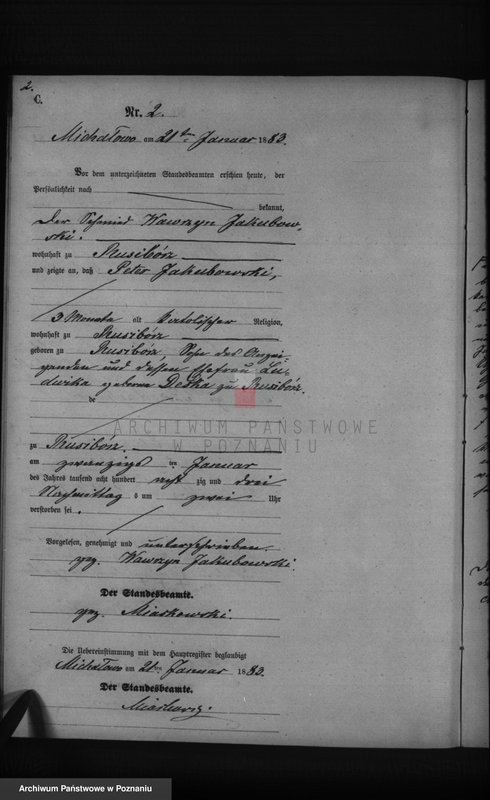 2.
C.
Nr. 2.
Michałowo am 21ten Januar 1883.
Vor dem unterzeichneten Standesbeamten erschien heute, der
Persönlichkeit nach
bekannt,
der Schmied Wawrzyn Jakubow-
ski.
wohnhaft zu Rusibórz
und zeigte an, daß Peter Jakubowski,
3 Monate alt katolischer Religion,
wohnhaft zu Rusibórz
geboren zu Rusibórz, Sohn des Anzei-
genden und dessen Ehefrau Lu-
dwika geborene Deska zu Rusibórz.
de
ARCHIWUM PAŃSTWOWE
W POZNANIU
zu Rusibórz
am zwanzigs ten Januar
des Jahres tausend acht hundert acht zig und drei
Nachmittag s um zwei Uhr
verstorben sei.
Vorgelesen, genehmigt und unterschrieben
gez. Wawrzyn Jakubowski.
Der Standesbeamte.
gez. Miaskowski.
Die Uebereinstimmung mit dem Hauptregister beglaubigt
Michałowo am 21ten Januar 1883.
Der Standesbeamte.
Archiwum Państwowe w Poznaniu